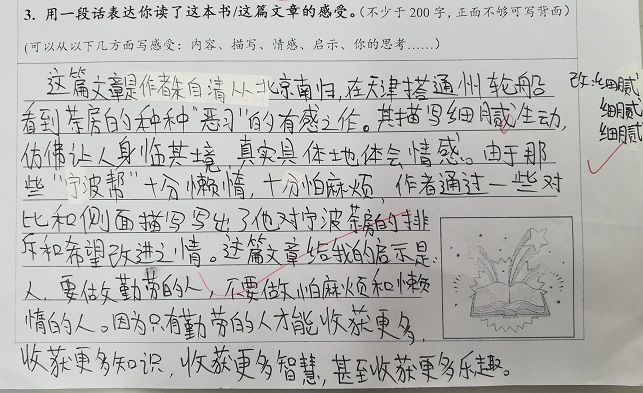 3. 用一段话表达你读了这本书/这篇文章的感受。(不少于 200 字, 正面不够可写背面)
(可以从以下几方面写感受: 内容、描写、情感、启示、你的思考……)
这篇文章是作者朱自清从北京南归,在天津搭通州轮船
看到茶房的种种“恶习”的有感之作。其描写细腻生动,
仿佛让人身临其境,真实具体地体会情感。由于那
些“宁波帮”十分懒惰,十分怕麻烦,作者通过一些对
比和侧面描写写出了他对宁波茶房的排
斥和希望改进之情。这篇文章给我的启示是:
人,要做勤劳的人,不要做怕麻烦和懒
惰的人。因为只有勤劳的人才能收获更多,
收获更多知识,收获更多智慧,甚至收获更多乐趣。
改:细腻
细腻
细腻